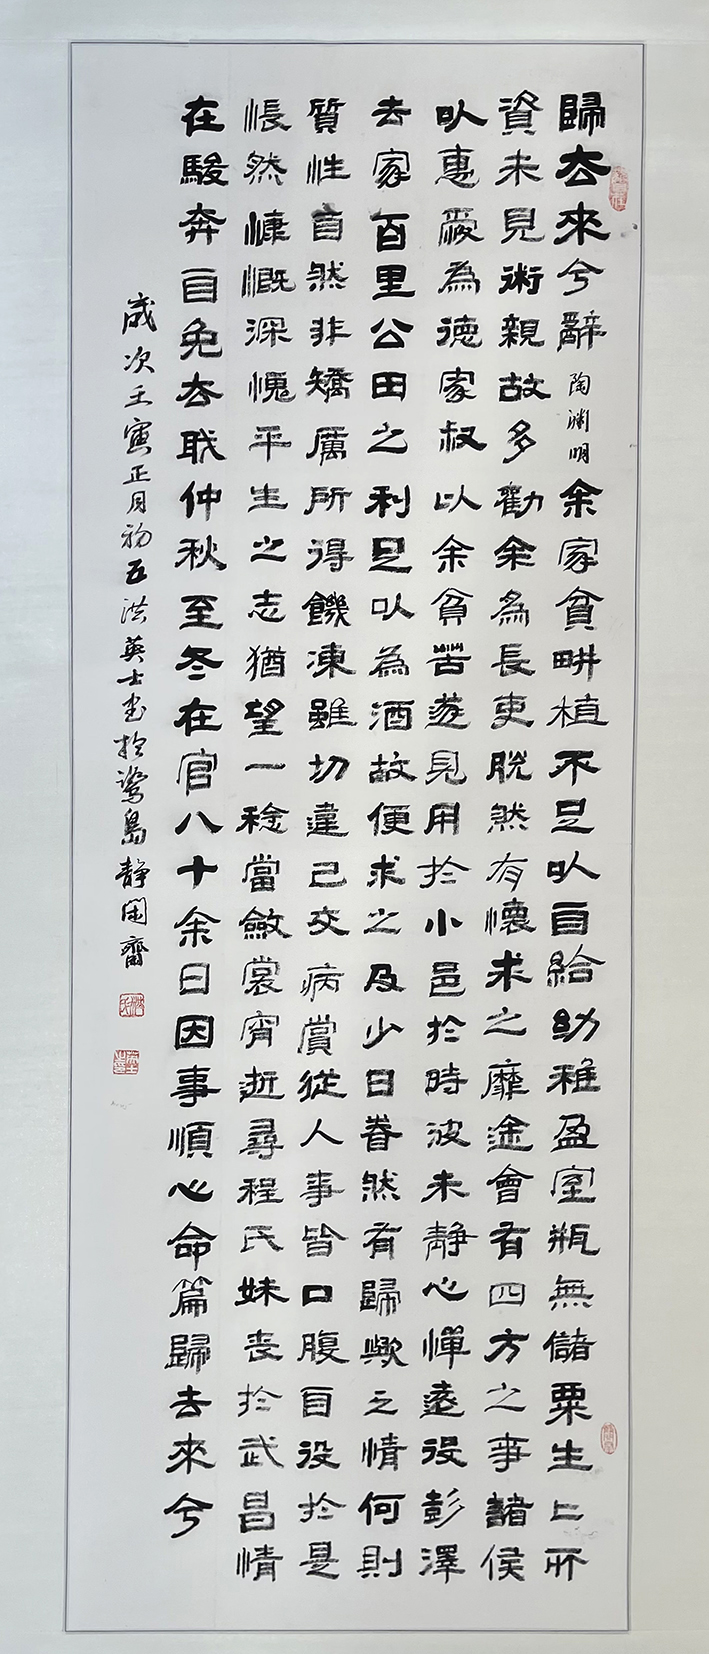 歸去來兮辭 陶渊明 余家貧畊植不足以自給幼稚盈室瓶無儲粟生〻所
資未見術親故多勸余為長吏脫然有懷求之靡途會有四方之事諸侯
以惠愛為德家叔以余貧苦遂見用於小邑於時波未靜心憚遠役彭澤
去家百里公田之利足以為酒故便求之及少日眷然有歸歟之情何則
質性自然非矯厲所得饑凍雖切違己交病賞從人事皆口腹自役於是
悵然慷慨深愧平生之志猶望一稔當斂裳宵逝尋程氏妹喪於武昌情
在駿奔自免去職仲秋至冬在官八十余日因事順心命篇歸去來兮
歲次壬寅正月初五洪英士書於鷺島靜閑齋